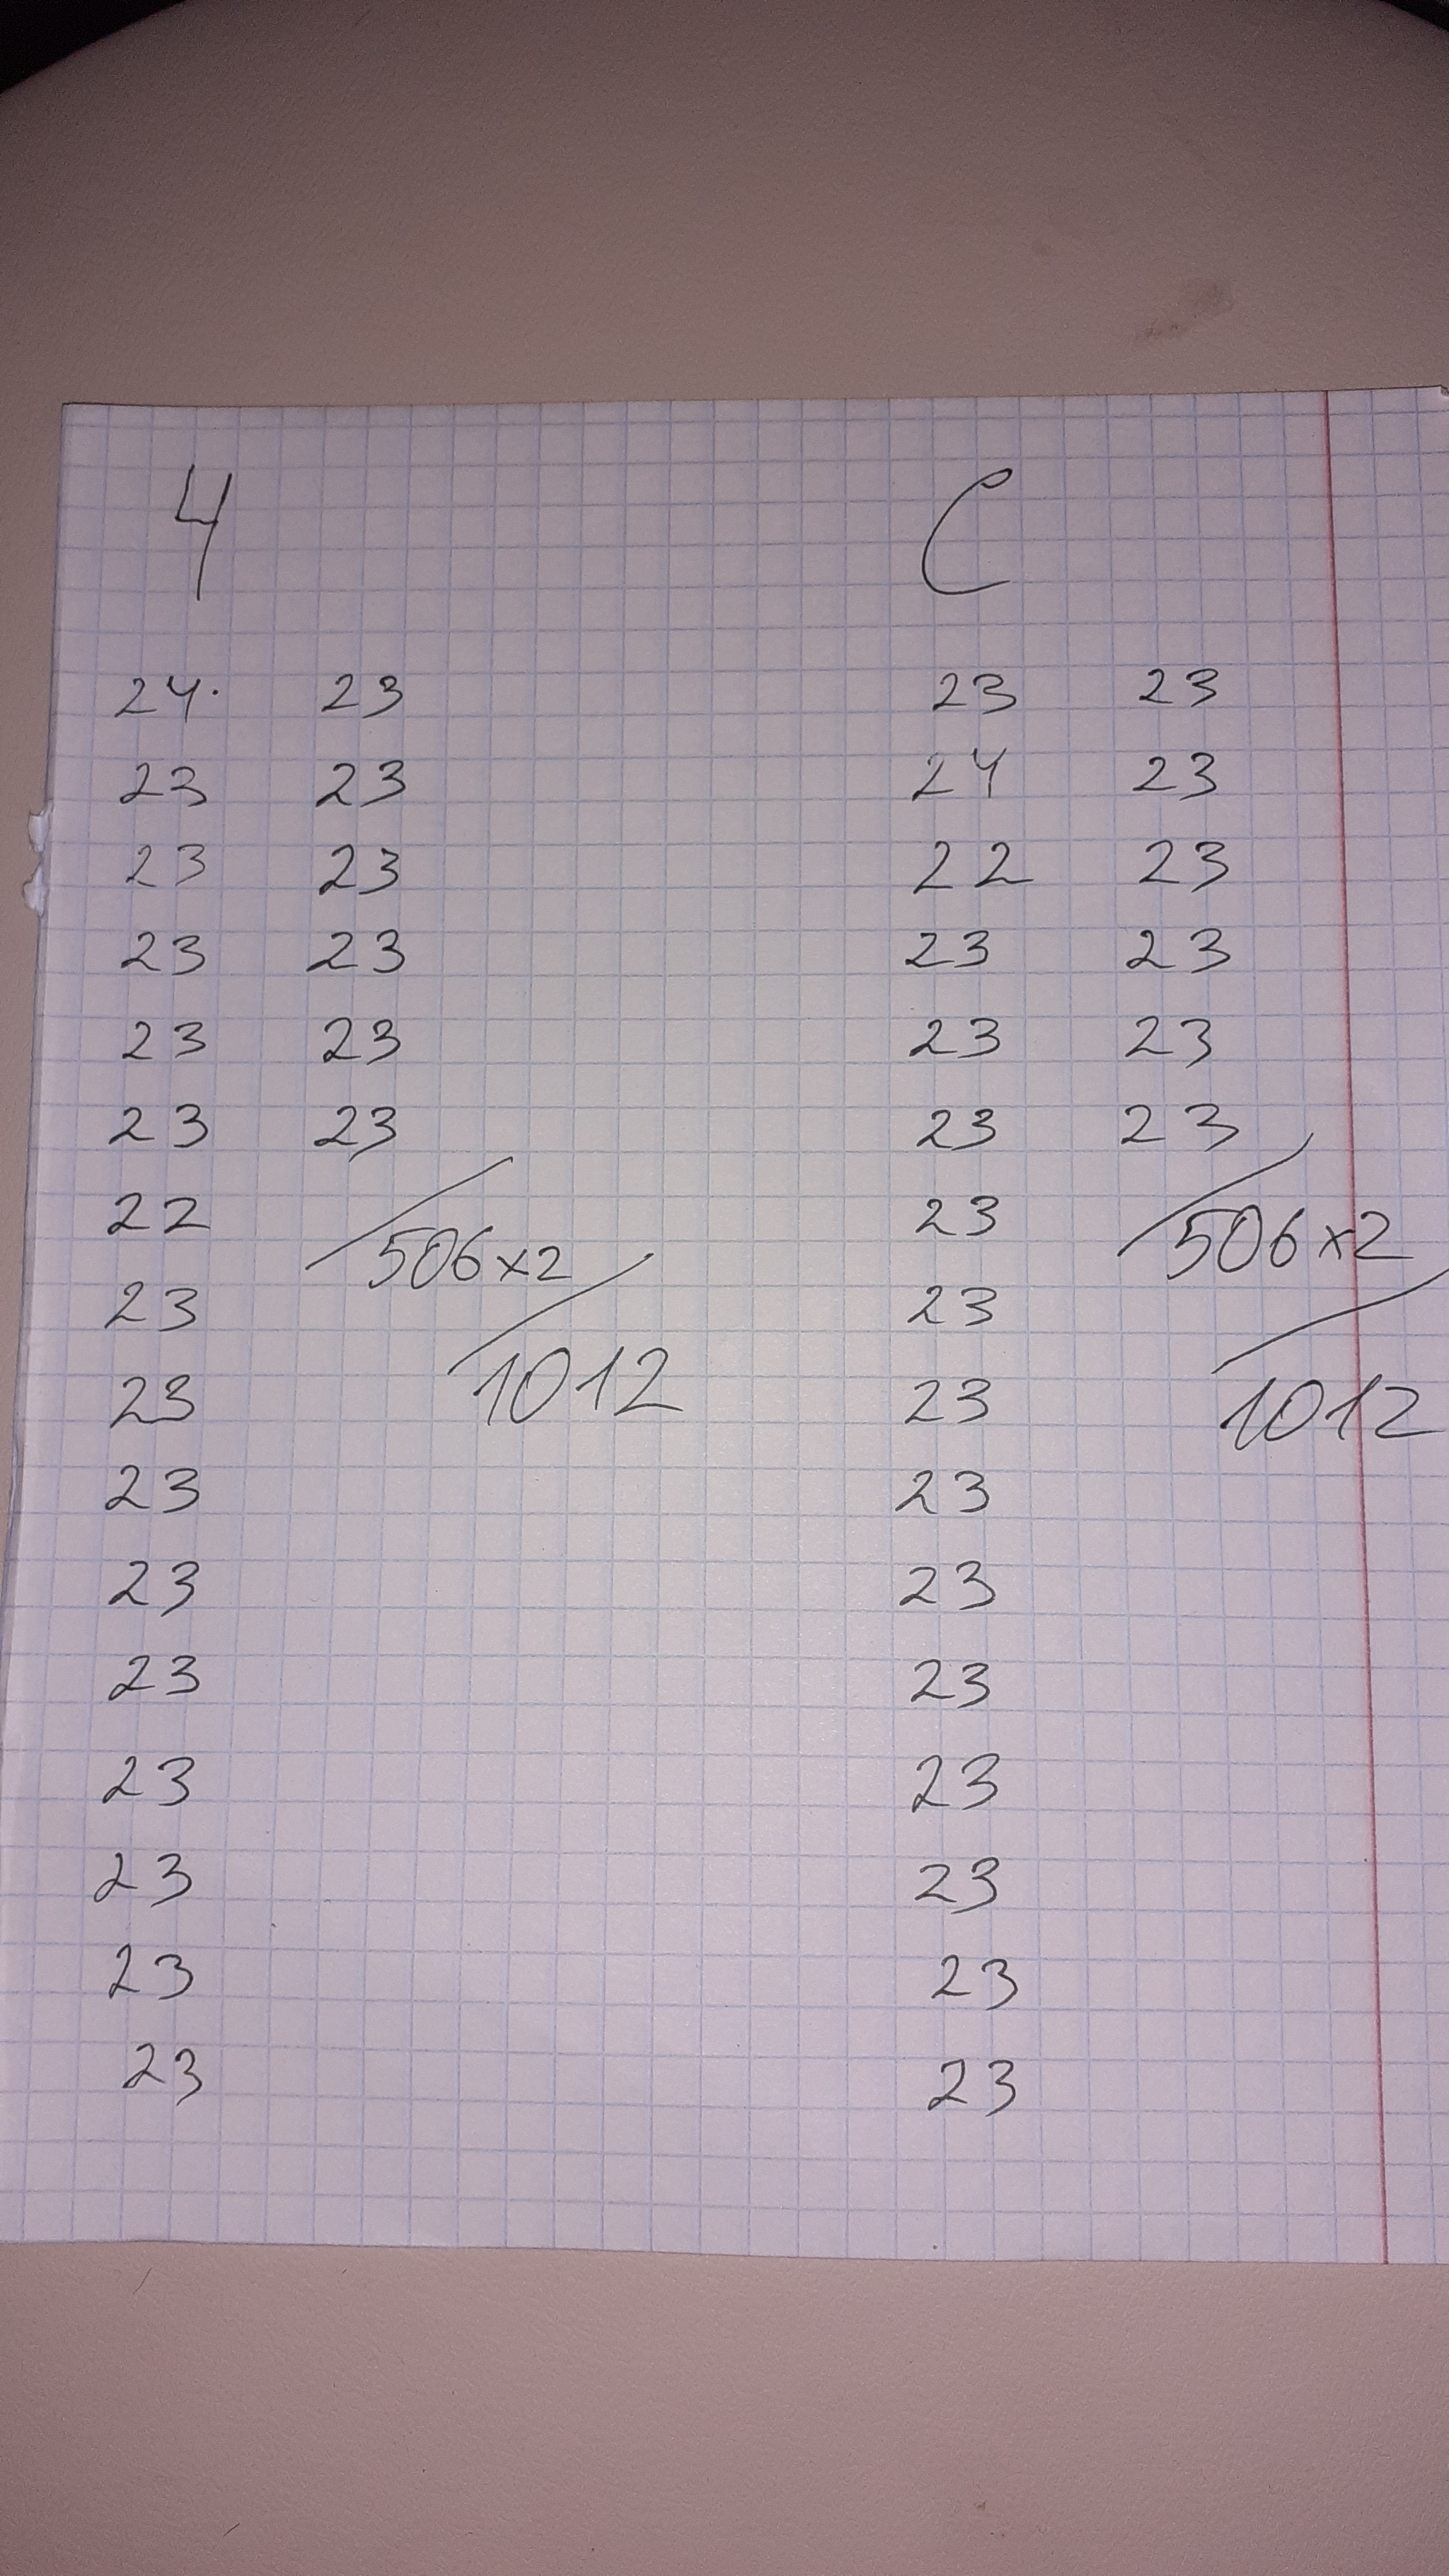 Ч С
24. 23 23 23
23 23 24 23
23 23 22 23
23 23 23 23
23 23 23 23
23 23 23 23
22 506x2 23 506x2
23 1012 23 1012
23 23
23 23
23 23
23 23
23 23
23 23
23 23
23 23